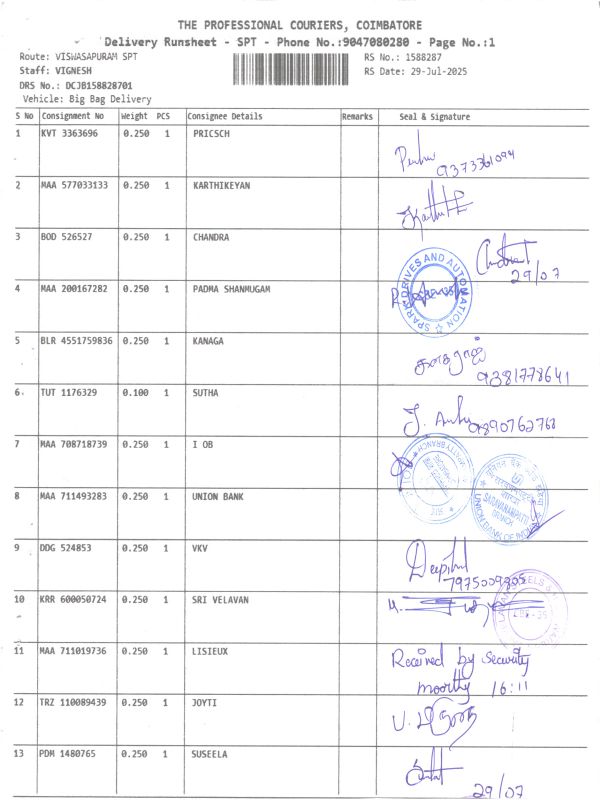 THE PROFESSIONAL COURIERS, COIMBATORE
Delivery Runsheet - SPT - Phone No.:9047080280 - Page No.:1
Route: VISWASAPURAM SPT RS No.: 1588287
Staff: VIGNESH RS Date: 29-Jul-2025
DRS No.: DCJB158828701
Vehicle: Big Bag Delivery
S No Consignment No Weight PCS Consignee Details Remarks Seal & Signature
1 KVT 3363696 0.250 1 PRICSCH
9373361094
2 MAA 577033133 0.250 1 KARTHIKEYAN
3 BOD 526527 0.250 1 CHANDRA
29/07
4 MAA 200167282 0.250 1 PADMA SHANMUGAM
SPARK DRIVES AND AUTOMATION
5 BLR 4551759836 0.250 1 KANAGA
கனகராஜ்
9381778641
6 TUT 1176329 0.100 1 SUTHA
9890762768
7 MAA 708718739 0.250 1 I OB
8 MAA 711493283 0.250 1 UNION BANK
UNION BANK OF INDIA
BRANCH
9 DDG 524853 0.250 1 VKV
7975009305
10 KRR 600050724 0.250 1 SRI VELAVAN
11 MAA 711019736 0.250 1 LISIEUX
Received by security
moorthy 16:11
12 TRZ 110089439 0.250 1 JOYTI
13 PDM 1480765 0.250 1 SUSEELA
29/07